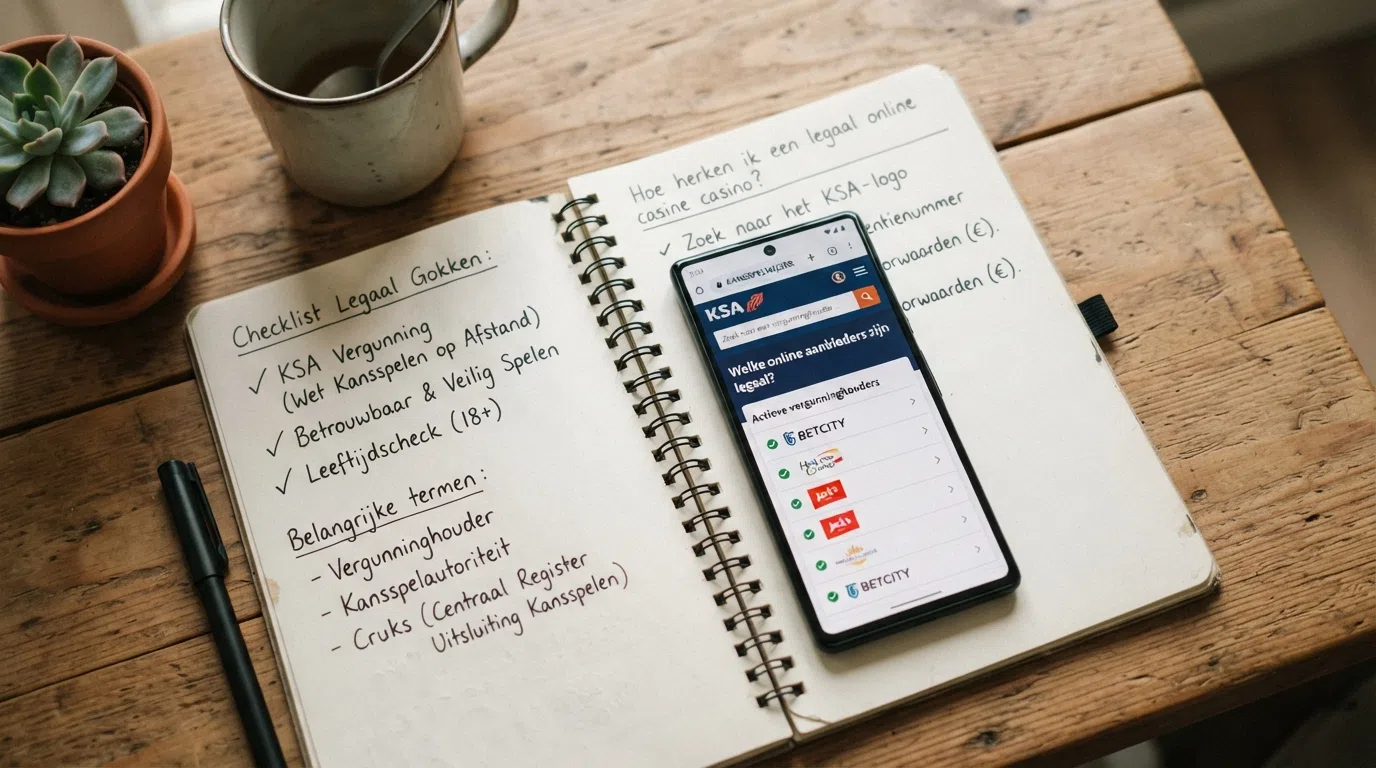 Checklist Legaal Gokken:
✓ KSA Vergunning
(Wet Kansspelen op Afstand)
✓ Betrouwbaar & Veilig Spelen
✓ Leeftijdscheck (18+)
Belangrijke termen:
- Vergunninghouder
- Kansspelautoriteit
- Cruks (Centraal Register
Uitsluiting Kansspelen)
Hoe herken ik een legaal online
casine casino?
✓ Zoek naar het KSA-logo
entienummer
orwaarden (€).
orwaarden (€).
KSA
Welke online aanbieders zijn
legaal?
Actieve vergunninghouders
BETCITY
BETCITY